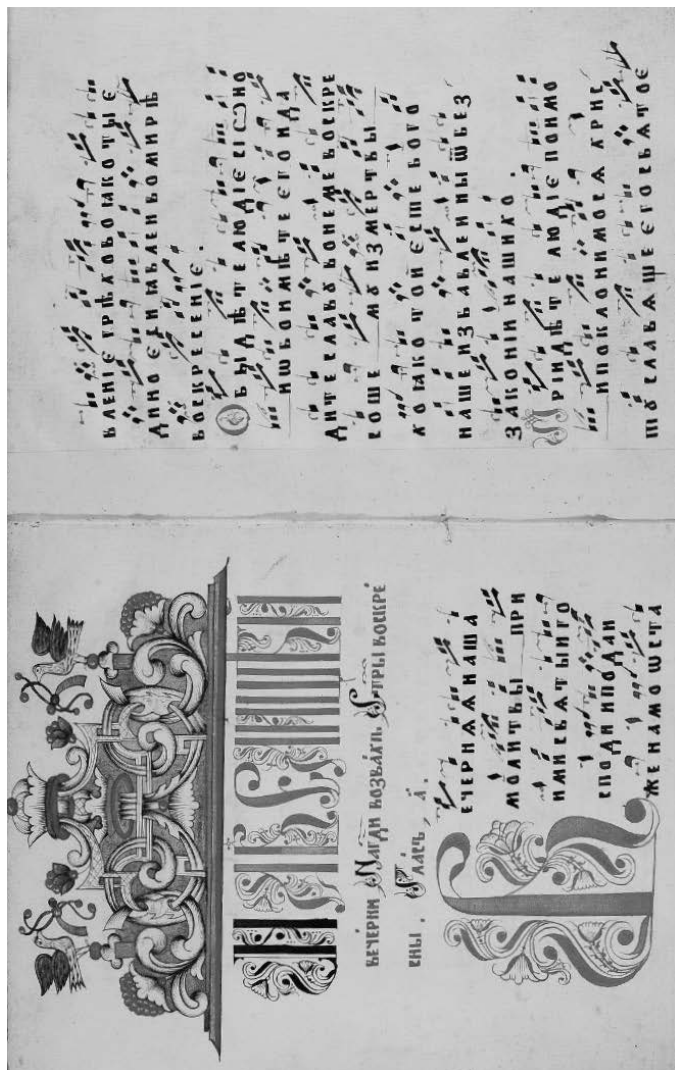 вече́рни На гди возва́хъ Стры воскре́
сны . Гла́съ , а҃ .
Вечернꙗѧ наша
молитвы при
ими свѧтыи го
споди и подаи
же намо ѡста
вленіе грѣхово ꙗко ты є
дино єси ꙗвлеи во мирѣ
воскресеніє .
Обыдѣте людіє сіѡно
и ѡбоимѣте єго и да
дите славꙋ во неме воскре
соше мꙋ из мертвы
хо ꙗко тои єсте бого
наше избавлеи ны ѿ без
законіи нашихо .
Пріидѣте людіє поимо
и поклонимосѧ хрис
тꙋ славѧще єго свѧтоє